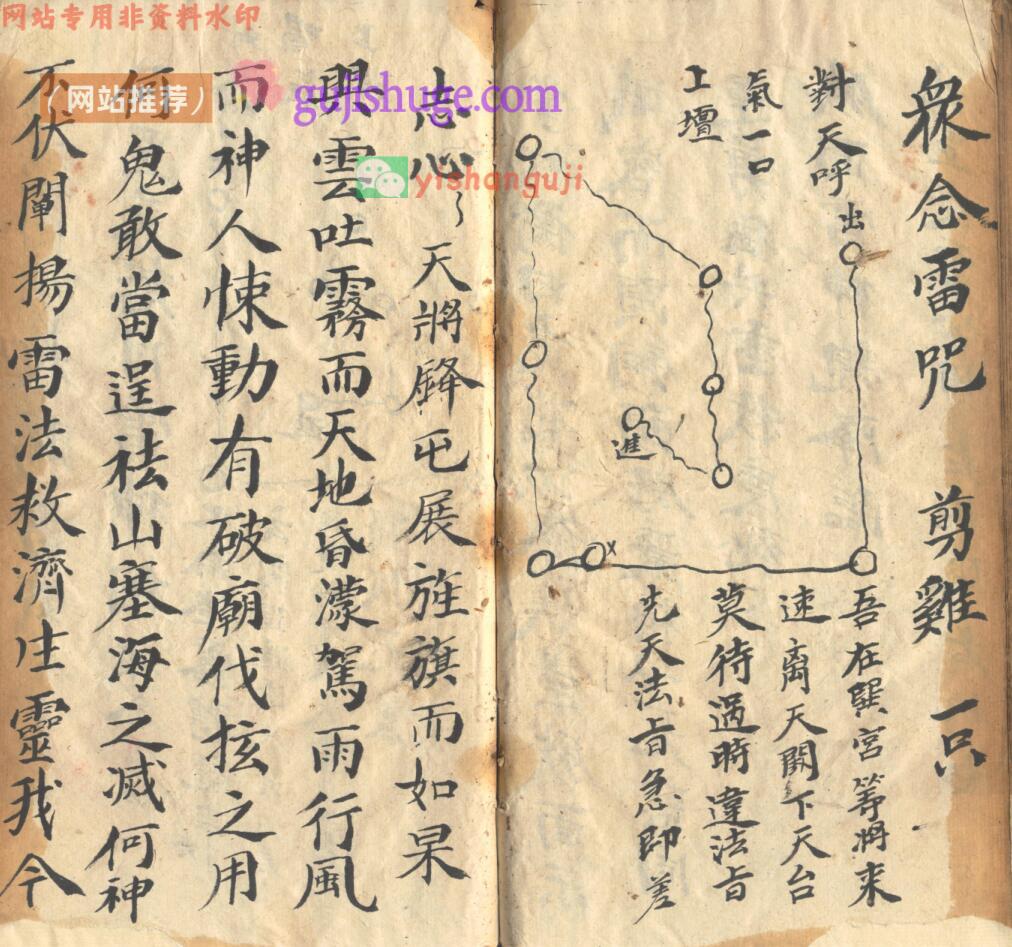 网站专用非资料水印
（网站推荐）
gujishuge.com
yishanguji
衆念雷咒 剪雞一只
對天呼出
氣一口
工壇
進
x
吾在巽宮等將来
速离天開下天台
莫待過時違法旨
先天法旨急即差
志心〻天將降屯展旌旗而如杲
興雲吐霧而天地昏濛駕雨行風
而神人悚動有破廟伐㧋之用
何鬼敢當逞祛山塞海之滅何神
不伏闡揚雷法救濟生靈我今